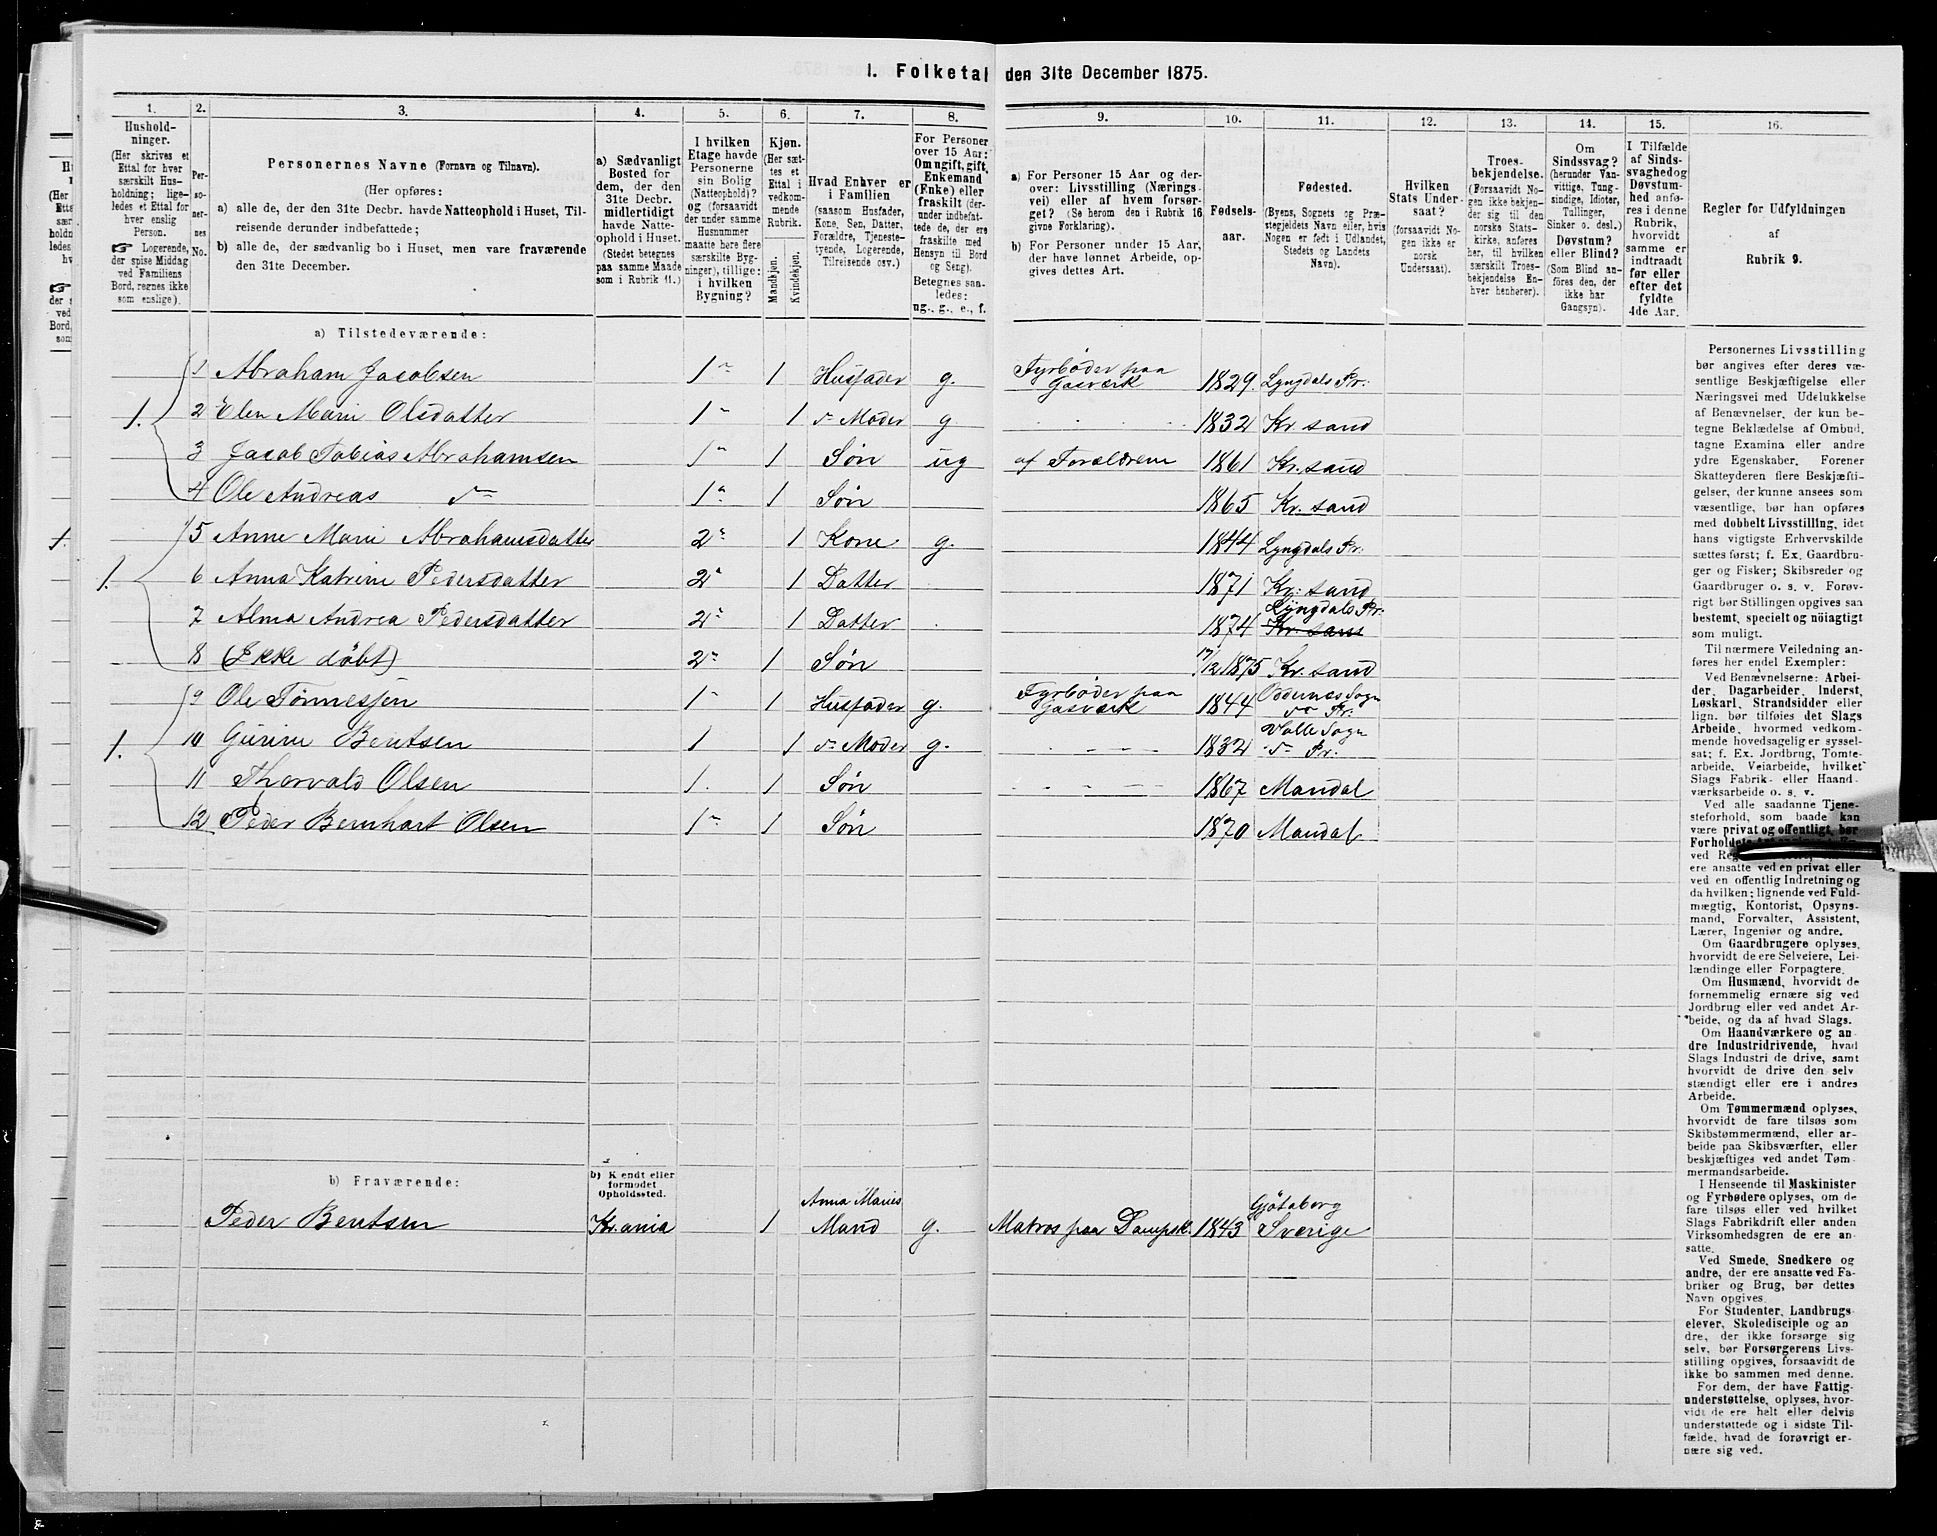 I. Folketal den 31te December 1875.
1. 2. 3. 4. 5. 6. 7. 8. 9. 10. 11. 12. 13. 14. 15. 16.
Hushold-
ninger.
(Her skrives et
Ettal for hver
særskilt Hus-
holdning; lige-
ledes et Ettal for
hver enslig
Person.
☞ Logerende,
der spise Middag
ved Familiens
Bord, regnes ikke
som enslige).
Per-
so-
ner-
nes
No.
Personernes Navne (Fornavn og Tilnavn).
(Her opføres:
a) alle de, der den 31te Decbr. havde Natteophold i Huset, Til-
reisende derunder indbefattede;
b) alle de, der sædvanlig bo i Huset, men vare fraværende
den 31te December.
a) Sædvanligt
Bosted for
dem, der den
31te Decbr.
midlertidigt
havde Natte-
ophold i Huset.
(Stedet betegnes
paa samme Maade
som i Rubrik 11.)
I hvilken
Etage havde
Personerne
sin Bolig
(Natteophold)?
og (forsaavidt
der under samme
Husnummer
maatte høre flere
særskilte Byg-
ninger), tillige:
i hvilken
Bygning?
Kjøn.
(Her sæt-
tes et
Ettal i
vedkom-
mende
Rubrik.
Mandkjøn.
Kvindekjøn.
Hvad Enhver er
i Familien
(saasom Husfader,
Kone, Søn, Datter,
Forældre, Tjeneste-
tyende, Logerende,
Tilreisende osv.)
For Personer
over 15 Aar:
Om ugift, gift,
Enkemand
(Enke) eller
fraskilt (der-
under indbefat-
tede de, der ere
fraskilte med
Hensyn til Bord
og Seng).
Betegnes saa-
ledes:
ug., g., e., f.
a) For Personer 15 Aar og der-
over: Livsstilling (Nærings-
vei) eller af hvem forsør-
get? (Se herom den i Rubrik 16
givne Forklaring).
b) For Personer under 15 Aar,
der have lønnet Arbeide, op-
gives dettes Art.
Fødsels-
aar.
Fødested.
(Byens, Sognets og Præ-
stegjeldets Navn eller, hvis
Nogen er født i Udlandet,
Stedets og Landets
Navn).
Hvilken
Stats Under-
saat?
(forsaavidt No-
gen ikke er
norsk
Undersaat).
Troes-
bekjendelse.
(Forsaavidt No-
gen ikke bekjen-
der sig til den
norske Stats-
kirke, anføres
her, til hvilken
særskilt Troes-
bekjendelse En-
hver henhører).
Om
Sindssvag?
(herunder Van-
vittige, Tung-
sindige, Idioter,
Tullinger,
Sinker o. desl.)
Døvstum?
eller Blind?
(Som Blind an-
føres den, der
ikke har
Gangsyn).
I Tilfælde
af Sinds-
svaghed og
Døvstum-
hed anfø-
res i denne
Rubrik,
hvorvidt
samme er
indtraadt
før eller
efter det
fyldte
4de Aar.
Regler for Udfyldningen
af
Rubrik 9.
a) Tilstedeværende:
1. 1 Abraham Jacobsen 1" 1 Husfader g. Fyrbøder paa Gasværk 1829. Lyngdals Pr:
2 Elen Marie Olsdatter 1" 1 d" Moder g. 1832 Kr. sand
3 Jacob Tobias Abrahamsen 1" 1 Søn ug af Forældrene 1861 Kr. sand
4 Ole Andreas d" 1" 1 Søn 1865 Kr. sand
1. 5 Anne Marie Abrahamsdatter 2" 1 Kone g. 1844 Lyngdals Pr.
6 Anna Katrine Pedersdatter 2" 1 Datter 1871 Kr. sand
7 Alma Andrea Pedersdatter 2" 1 Datter 1874 Lyngdals Pr: Kr. sand
8 (Ikke døbt) 2" 1 Søn 17/12 1875 Kr. sand
1. 9 Ole Tønnessen 1" 1 Husfader g. Fyrbøder paa Gasværk 1844 Oddernes Sogn d" Pr.
10 Gurine Bentsen 1 1 d" Moder g. 1832 Valle Sogn d" Pr.
11 Thorvald Olsen 1. 1 Søn 1867 Mandal
12 Peder Bernhart Olsen 1" 1 Søn 1870 Mandal
b) Fraværende:
b) Kendt eller
formodet
Opholdssted.
Peder Bentsen Kr.ania 1 Anna Maries Mand g. Matros paa Dampsk. 1843 Gjøteborg Sverige
Personernes Livsstilling
bør angives efter deres væ-
sentlige Beskjæftigelse eller
Næringsvei med Udelukkelse
af Benævnelser, der kun be-
tegne Beklædelse af Ombud,
tagne Examina eller andre
ydre Egenskaber. Forener
Skatteyderen flere Beskjæfti-
gelser, der kunne ansees som
væsentlige, bør han opføres
med dobbelt Livsstilling, idet
hans vigtigste Erhvervskilde
sættes først; f. Ex. Gaardbru-
ger og Fisker; Skibsreder og
Gaardbruger o. s. v. Forøv-
rigt bør Stillingen opgives saa
bestemt, specielt og nöiagtigt
som muligt.
Til nærmere Veiledning an-
føres her endel Exempler:
Ved Benævnelserne: Arbei-
der, Dagarbeider, Inderst,
Løskarl, Strandsidder eller
lign. bør tilføies det Slags
Arbeide, hvormed vedkom-
mende hovedsagelig er syssel-
sat; f. Ex. Jordbrug, Tomte-
arbeide, Veiarbeide, hvilket
Slags Fabrik- eller Haand-
værksarbeide o. s. v.
Ved alle saadanne Tjene-
steforhold, som baade kan
være privat og offentligt, bør
Forholdets
ved
ere ansatte ved en privat eller
ved en offentlig Indretning og
da hvilken; lignende ved Fuld-
mægtig, Kontorist, Opsyns-
mand, Forvalter, Assistent,
Lærer, Ingeniør og andre.
Om Gaardbrugere oplyses,
hvorvidt de ere Selveiere, Lei-
lændinge eller Forpagtere.
Om Husmænd, hvorvidt de
fornemmelig ernære sig ved
Jordbrug eller ved andet Ar-
beide, og da af hvad Slags.
Om Haandværkere og an-
dre Industridrivende, hvad
Slags Industri de drive, samt
hvorvidt de drive den selv-
stændigt eller ere i andres
Arbeide.
Om Tømmermænd oplyses,
hvorvidt de fare tilsøs som
Skibstømmermænd, eller ar-
beide paa Skibsværfter, eller
beskjæftiges ved andet Tøm-
mermandsarbeide.
I Henseende til Maskinister
og Fyrbødere oplyses, om de
fare tilsøs eller ved hvilket
Slags Fabrikdrift eller anden
Virksomhedsgren de ere an-
satte.
Ved Smede, Snedkere og
andre, der ere ansatte ved Fa-
briker og Brug, bør dettes
Navn opgives.
For Studenter, Landbrugs-
elever, Skoledisciple og an-
dre, der ikke forsørge sig
selv, bør Forsørgerens Livs-
stilling opgives, forsaavidt de
ikke bo sammen med denne.
For dem, der have Fattig-
understøttelse, oplyses, hvor-
vidt de ere helt eller delvis
understøttede og i sidste Til-
fælde, hvad de forøvrigt er-
nære sig ved.